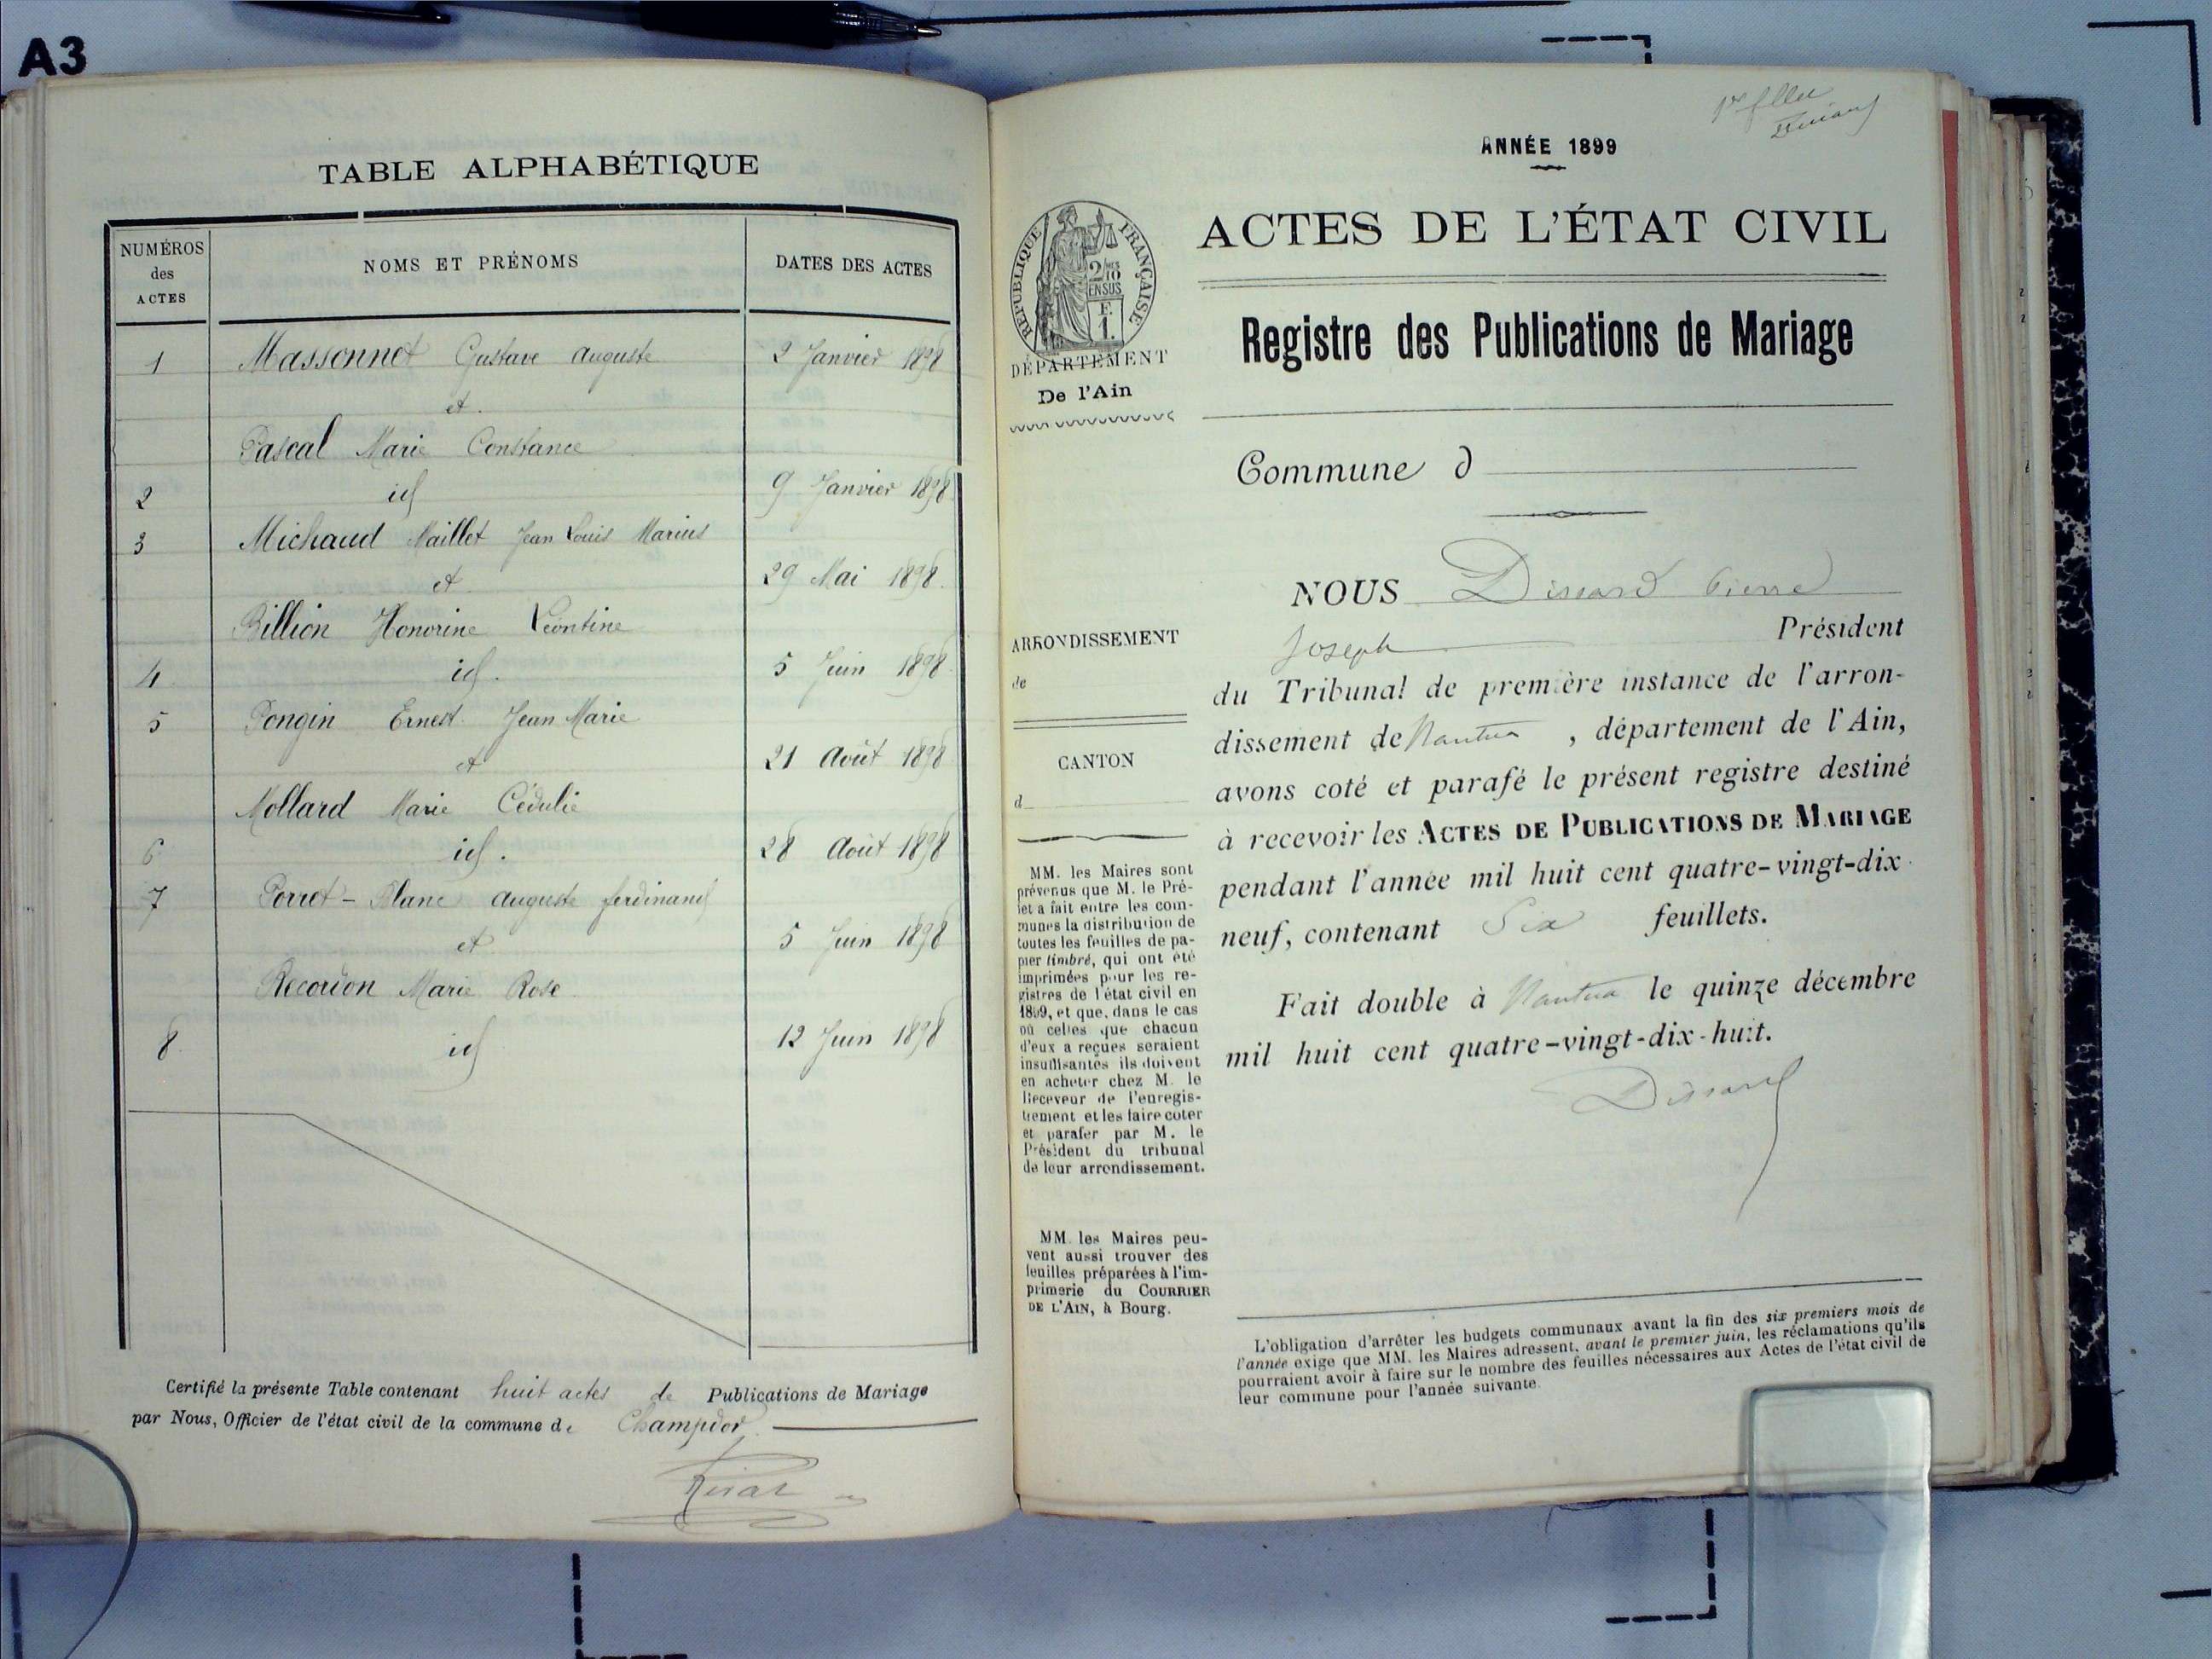 A3
TABLE ALPHABÉTIQUE
NUMÉROS
des
ACTES
NOMS ET PRÉNOMS
DATES DES ACTES
1 Massonnet Gustave Auguste 2 Janvier 1898
et
Pascal Marie Constance
2 id 9 Janvier 1898
3 Michaud Maillet Jean Louis Marius
et 29 Mai 1898
Billion Honorine Léontine
4 id. 5 Juin 1898
5 Pongin Ernest Jean Marie
et 21 Août 1898
Mollard Marie Cédulie
6 id. 28 Août 1898
7 Porret-Blanc Auguste ferdinand
et 5 Juin 1898
Recordon Marie Rose
8 id 12 Juin 1898
Certifié la présente Table contenant huit actes de Publications de Mariage
par Nous, Officier de l'état civil de la commune de Champdor
ANNÉE 1899
RÉPUBLIQUE FRANÇAISE
2/10
EN SUS
F.
1.
DÉPARTEMENT
De l'Ain
ACTES DE L'ÉTAT CIVIL
Registre des Publications de Mariage
Commune d
ARRONDISSEMENT
de
CANTON
d
MM. les Maires sont
prévenus que M. le Pré-
fet a fait entre les com-
munes la distribution de
toutes les feuilles de pa-
pier timbré, qui ont été
imprimées pour les re-
gistres de l'état civil en
1899, et que, dans le cas
où celles que chacun
d'eux a reçues seraient
insuffisantes ils doivent
en acheter chez M. le
Receveur de l'enregis-
trement et les faire coter
et parafer par M. le
Président du tribunal
de leur arrondissement.
MM. les Maires peu-
vent aussi trouver des
feuilles préparées à l'im-
primerie du COURRIER
DE L'AIN, à Bourg.
NOUS Dissard Pierre
Joseph Président
du Tribunal de première instance de l'arron-
dissement de Nantua, département de l'Ain,
avons coté et parafé le présent registre destiné
à recevoir les ACTES DE PUBLICATIONS DE MARIAGE
pendant l'année mil huit cent quatre-vingt-dix-
neuf, contenant Six feuillets.
Fait double à Nantua le quinze décembre
mil huit cent quatre-vingt-dix-huit.
Dissard
L'obligation d'arrêter les budgets communaux avant la fin des six premiers mois de
l'année exige que MM. les Maires adressent, avant le premier juin, les réclamations qu'ils
pourraient avoir à faire sur le nombre des feuilles nécessaires aux Actes de l'état civil de
leur commune pour l'année suivante.